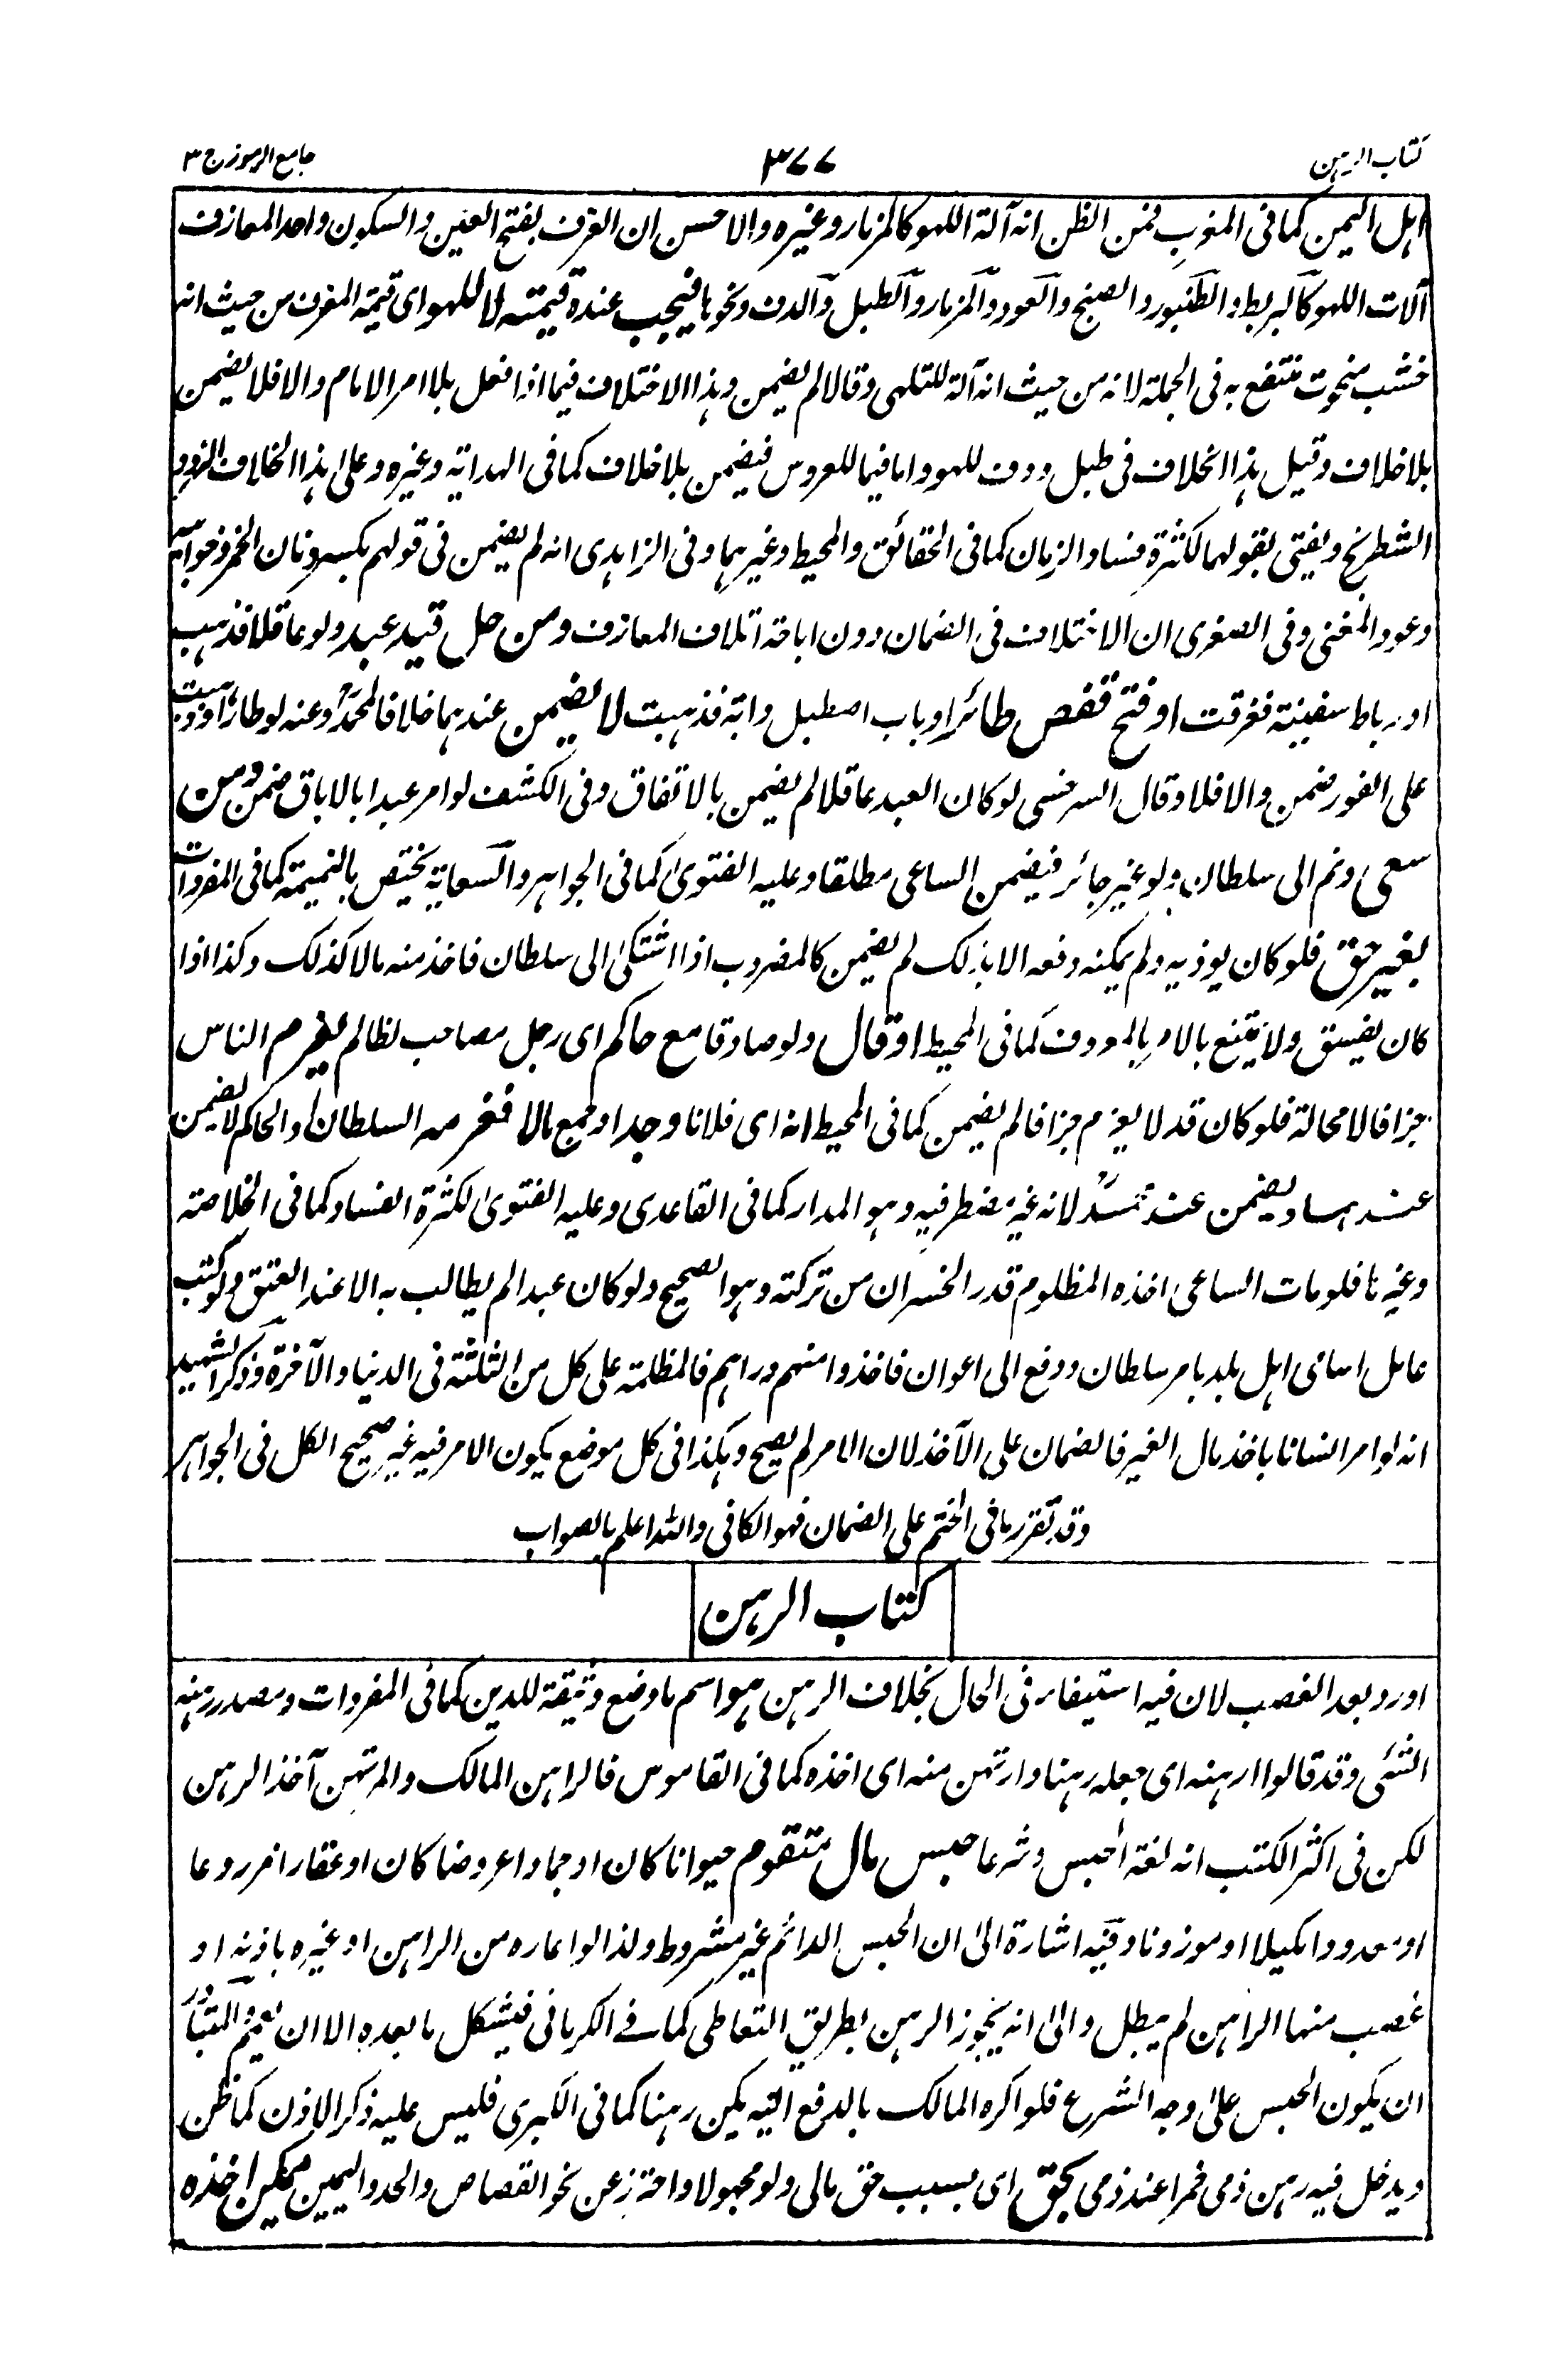 كتاب الرهن
٣٧٧
جامع الرموز ج ٣
اهل اليمن كما فى المغرب فمن الظن انه آلة اللهو كالمزمار وغيره والاحسن ان العزف بفتح العين والسكون واحد المعازف
آلات اللهو كالبربط والطنبور والصنج والعود والمزمار والطبل والدف ونحوها فيجب عنده قيمته لا للهو اى قيمة المعزف من حيث انه
خشب منحوت منتفع به فى الجملة لانه من حيث انه آلة للتلهى وقالا لم يضمن وهذا الاختلاف فيما اذا فعل بلا امر الامام والا فلا يضمن
بلا خلاف وقيل هذا الخلاف فى طبل ودف للهو واما فيما للعروس فيضمن بلا خلاف كما فى الهداية وغيره وعلى هذا الخلاف النرد و
الشطرنج ويفتى بقولهما لكثرة فساد الزمان كما فى الحقائق والمحيط وغيرهما وفى الزاهدى انه لم يضمن فى قولهم بكسر دنان الخمر وخوابيه
وعود المغنى وفى الصغرى ان الاختلاف فى الضمان دون اباحة اتلاف المعازف ومن حل قيد عبد ولو عاقلا فذهب
او رباط سفينة فغرقت او فتح قفص طائر او باب اصطبل دابة فذهبت لا يضمن عندهما خلافا لمحمد وعنه لو طار او ذهبت
على الفور ضمن والا فلا وقال السرخسى لو كان العبد عاقلا لم يضمن بالاتفاق وفى الكشف لو امر عبدا بالاباق ضمن ومن
سعى ونم الى سلطان ولو غير جائر فيضمن الساعى مطلقا وعليه الفتوى كما فى الجواهر والسعاية يختص بالنميمة كما فى المفردات
بغير حق فلو كان يوذيه ولم يمكنه دفعه الا بذلك لم يضمن كالمضروب اذا اشتكى الى سلطان فاخذ منه مالا كذلك وكذا اذا
كان يفسق ولا يمتنع بالامر بالمعروف كما فى المحيط او قال ولو صادقا مع حاكم اى رجل مصاحب لظالم يغرم الناس
جزافا لا محالة فلو كان قد لا يغرم جزافا لم يضمن كما فى المحيط انه اى فلانا وجد او جمع مالا فغرمه السلطان او الحاكم لا يضمن
عندهما ويضمن عند محمد لانه غير مضطر فيه وهو المدار كما فى القاعدى وعليه الفتوى لكثرة الفساد كما فى الخلاصة
وغيرها فلو مات الساعى اخذه المظلوم قدر الخسران من تركته وهو الصحيح ولو كان عبدا لم يطالب به الا عند العتق ولو كتب
عامل اسامى اهل بلد بامر سلطان ودفع الى اعوان فاخذوا منهم دراهم فالمظلمة على كل من الثلثة فى الدنيا والآخرة وذكر الشهيد
انه لو امر انسانا باخذ مال الغير فالضمان على الآخذ لان الامر لم يصح وهكذا فى كل موضع يكون الامر فيه غير صحيح الكل فى الجواهر
وقد تقرر ما فى الختم على الضمان فهو الكافى والله اعلم بالصواب
كتاب الرهن
اورد بعد الغصب لان فيه استيفاء فى الحال بخلاف الرهن هو اسم ما وضع وثيقة للدين كما فى المفردات ومصدر رهنه
الشئى وقد قالوا ارهنه اى جعله رهنا وارتهن منه اى اخذه كما فى القاموس فالراهن المالك والمرتهن آخذ الرهن
لكن فى اكثر الكتب انه لغة الحبس وشرعا حبس مال متقوم حيوانا كان او جمادا عروضا كان او عقارا مزروعا
او معدودا مكيلا او موزونا وفيه اشارة الى ان الحبس الدائم غير مشروط ولذا لو اعاره من الراهن او غيره باذنه او
غصب منها الراهن لم يبطل والى انه يجوز الرهن بطريق التعاطى كما فے الكرمانى فيشكل ما بعده الا ان يعمم والمتبادر
ان يكون الحبس على وجه الشرع فلو اكره المالك بالدفع اليه لم يكن رهنا كما فى الكبرى فليس عليه ذكر الاذن كما ظن
ويدخل فيه رهن ذمى خمرا عند ذمى بحق اى بسبب حق مالى ولو مجهولا واحترز عن نحو القصاص والحد واليمين يمكن اخذه